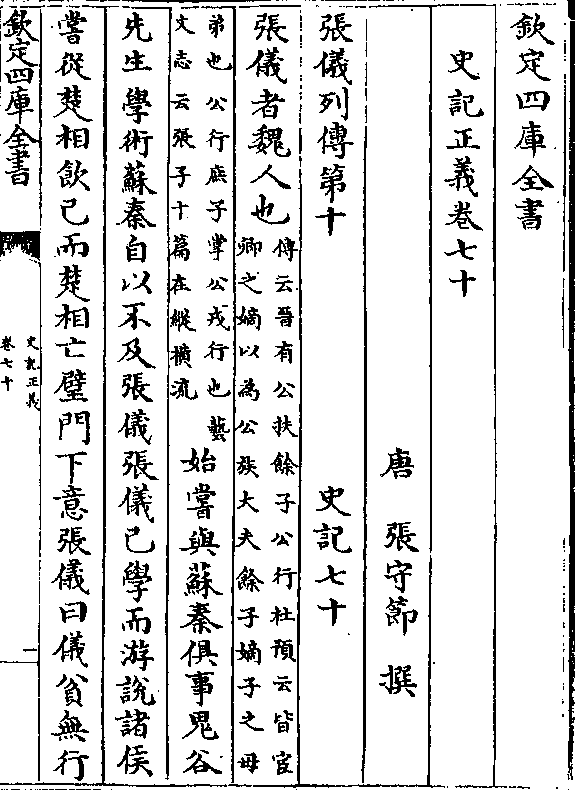 欽定四庫全書
史記正義卷七十
唐 張守節 撰
張儀列傳第十 史記七十
張儀者魏人也
傳云晉有公扶餘子公行杜預云皆官
卿之嫡以為公族大夫餘子嫡子之毋
弟也公行庶子掌公戎行也 藝
文志云張子十篇在縱橫流
始嘗與蘇秦俱事鬼谷
先生學術蘇秦自以不及張儀張儀已學而游說諸侯
嘗從楚相飲已而楚相亡璧門下意張儀曰儀貧無行
欽定四庫全書
史記正義
卷七十
一